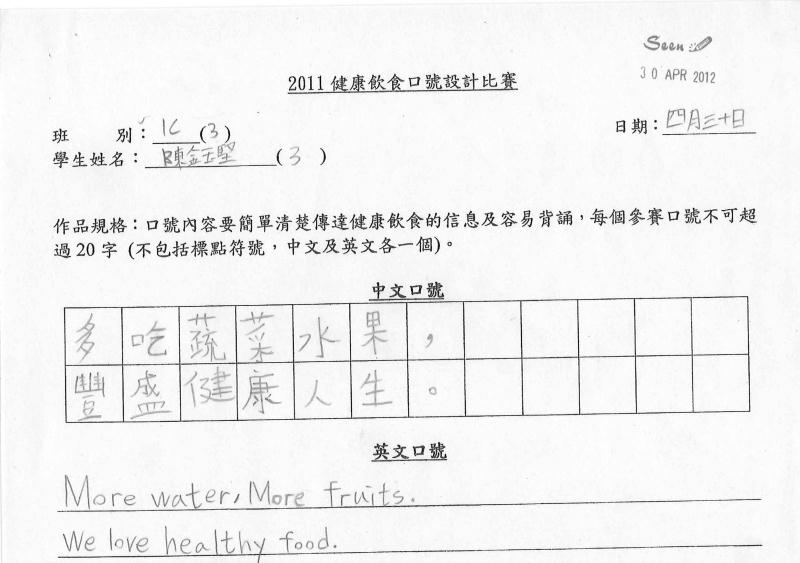 Seen
30 APR 2012
2011 健康飲食口號設計比賽
班 別：1C (3)
日期：四月三十日
學生姓名：陳鈺堅 (3)
作品規格：口號內容要簡單清楚傳達健康飲食的信息及容易背誦，每個參賽口號不可超
過 20 字 (不包括標點符號，中文及英文各一個)。
中文口號
多吃蔬菜水果，
豐盛健康人生。
英文口號
More water, More fruits.
We love healthy food.